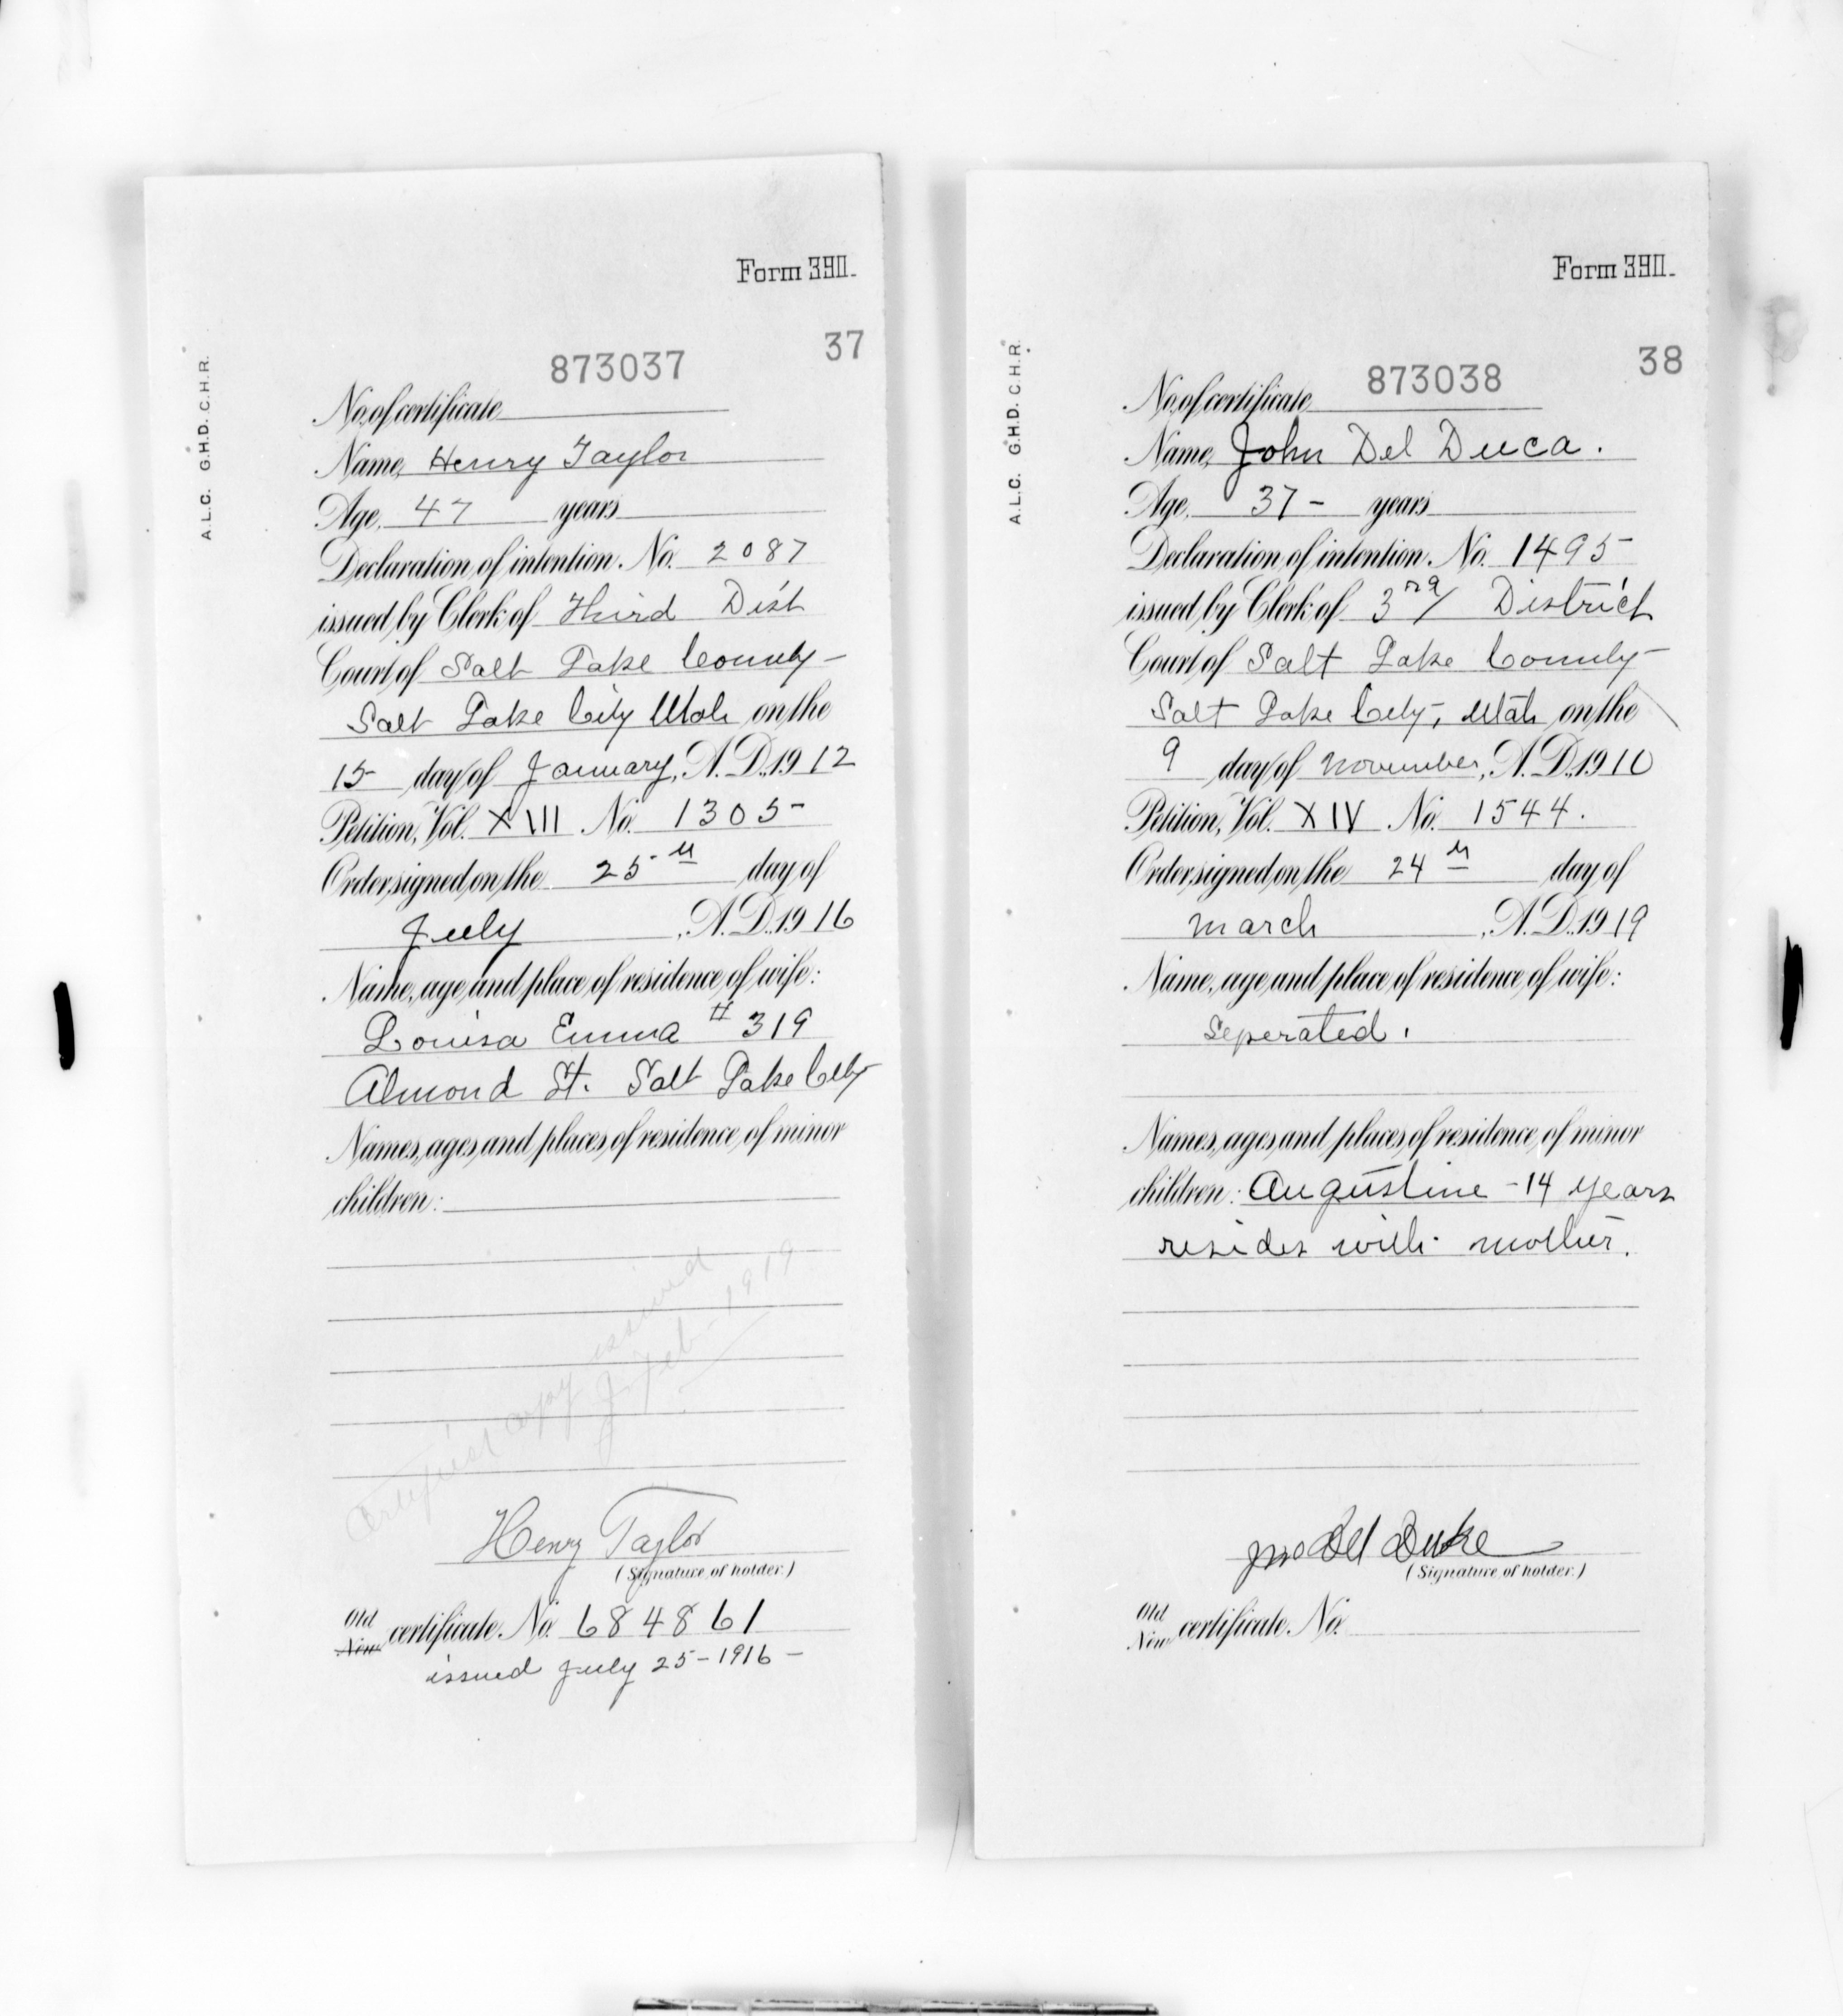 Form 3911.
A.L.C. G.H.D. C.H.R.
37
873037
No. of certificate
Name, Henry Taylor
Age, 47 years
Declaration of intention. No. 2087
issued by Clerk of Third Dist
Court of Salt Lake County -
Salt Lake City Utah on the
15 day of January, A.D., 1912
Petition, Vol. XIII No. 1305 -
Order signed on the 25th day of
July, A.D., 1916
Name, age and place of residence of wife:
Louisa Emma # 319
Almond St. Salt Lake City
Names, ages and places of residence of minor
children:
Certified copy issued
Feb - 1919
Henry Taylor
(Signature of holder.)
Old
New certificate. No. 684861
issued July 25 - 1916 -
Form 3911.
A.L.C. G.H.D. C.H.R.
38
873038
No. of certificate
Name, John Del Duca.
Age, 37 - years
Declaration of intention. No. 1495
issued by Clerk of 3rd District
Court of Salt Lake County
Salt Lake City, Utah on the
9 day of November, A.D., 1910
Petition, Vol. XIV No. 1544.
Order signed on the 24th day of
March, A.D., 1919
Name, age and place of residence of wife:
Seperated.
Names, ages and places of residence of minor
children: Augustine - 14 years
resides with mother.
Jno Del Duke
(Signature of holder.)
Old
New certificate. No.